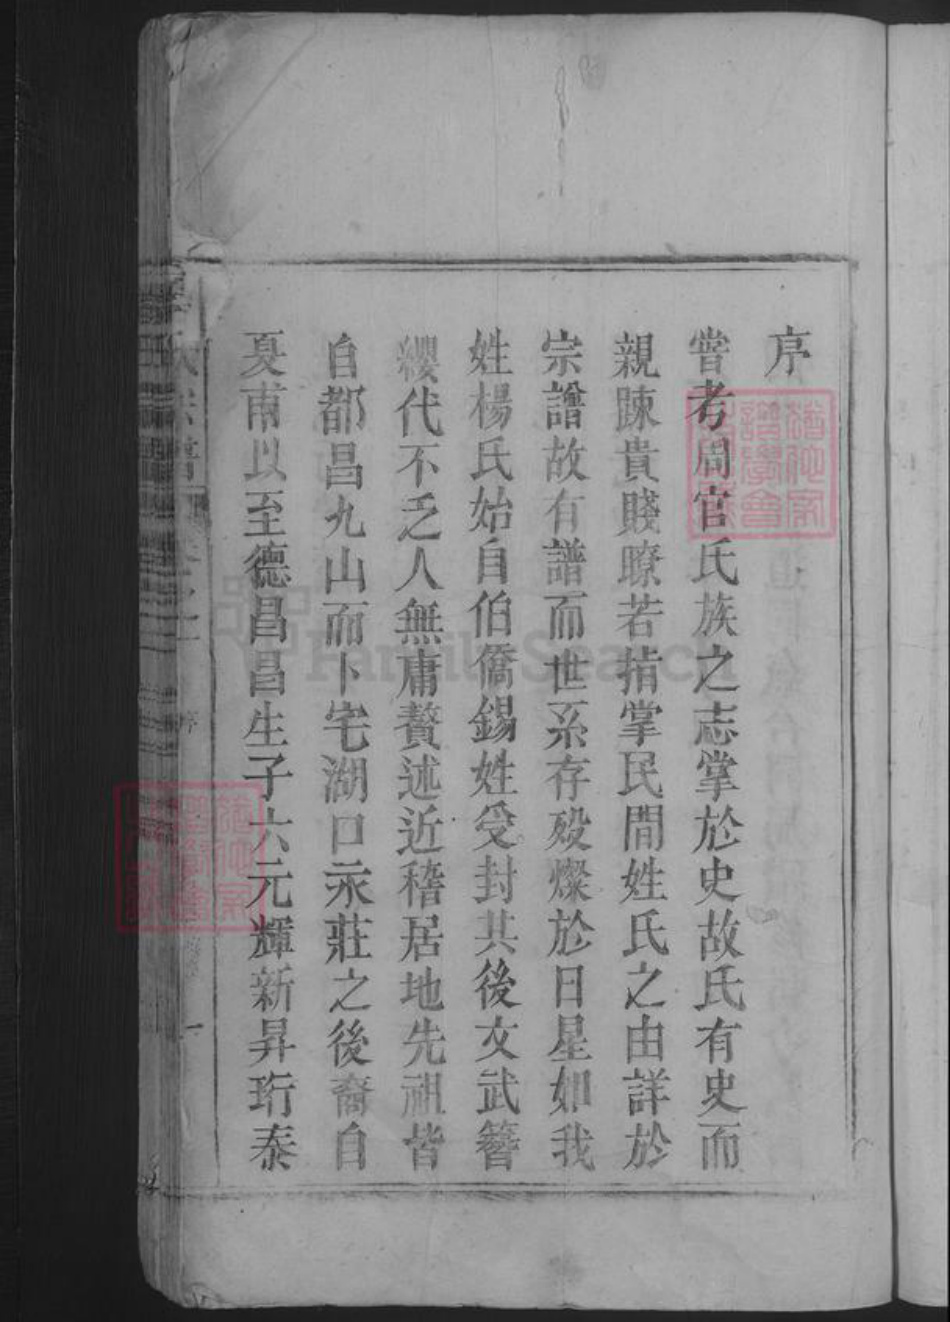 序
嘗考周官氏族之志掌於史故氏有史而
親踈貴賤暸若指掌民間姓氏之由詳於
宗譜故有譜而世系存殁燦於日星如我
姓楊氏始自伯僑錫姓受封其後文武簪
纓代不乏人無庸贅述近稽居地先祖皆
自都昌九山而卜宅湖口永莊之後裔自
夏甫以至德昌昌生子六元輝新昇珩泰
氏宗譜
序
一
FamilySearch